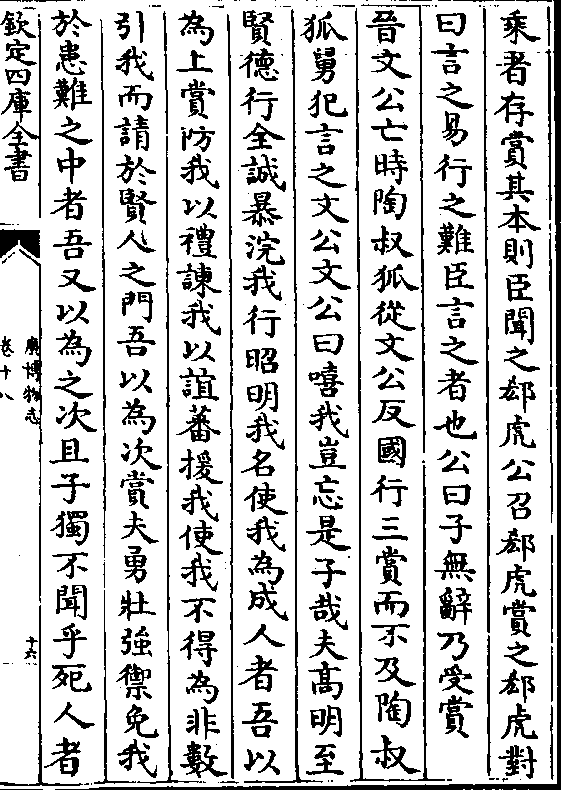 乘者存賞其本則臣聞之郄虎公召郄虎賞之郄虎對
曰言之易行之難臣言之者也公曰子無辭乃受賞
晉文公亡時陶叔狐從文公反國行三賞而不及陶叔
狐舅犯言之文公文公曰嘻我豈忘是子哉夫髙明至
賢德行全誠暴浣我行昭明我名使我為成人者吾以
為上賞防我以禮諫我以誼蕃援我使我不得為非數
引我而請於賢人之門吾以為次賞夫勇壯強禦免我
於患難之中者吾又以為之次且子獨不聞乎死人者
欽定四庫全書
廣博物志
卷十八
十六